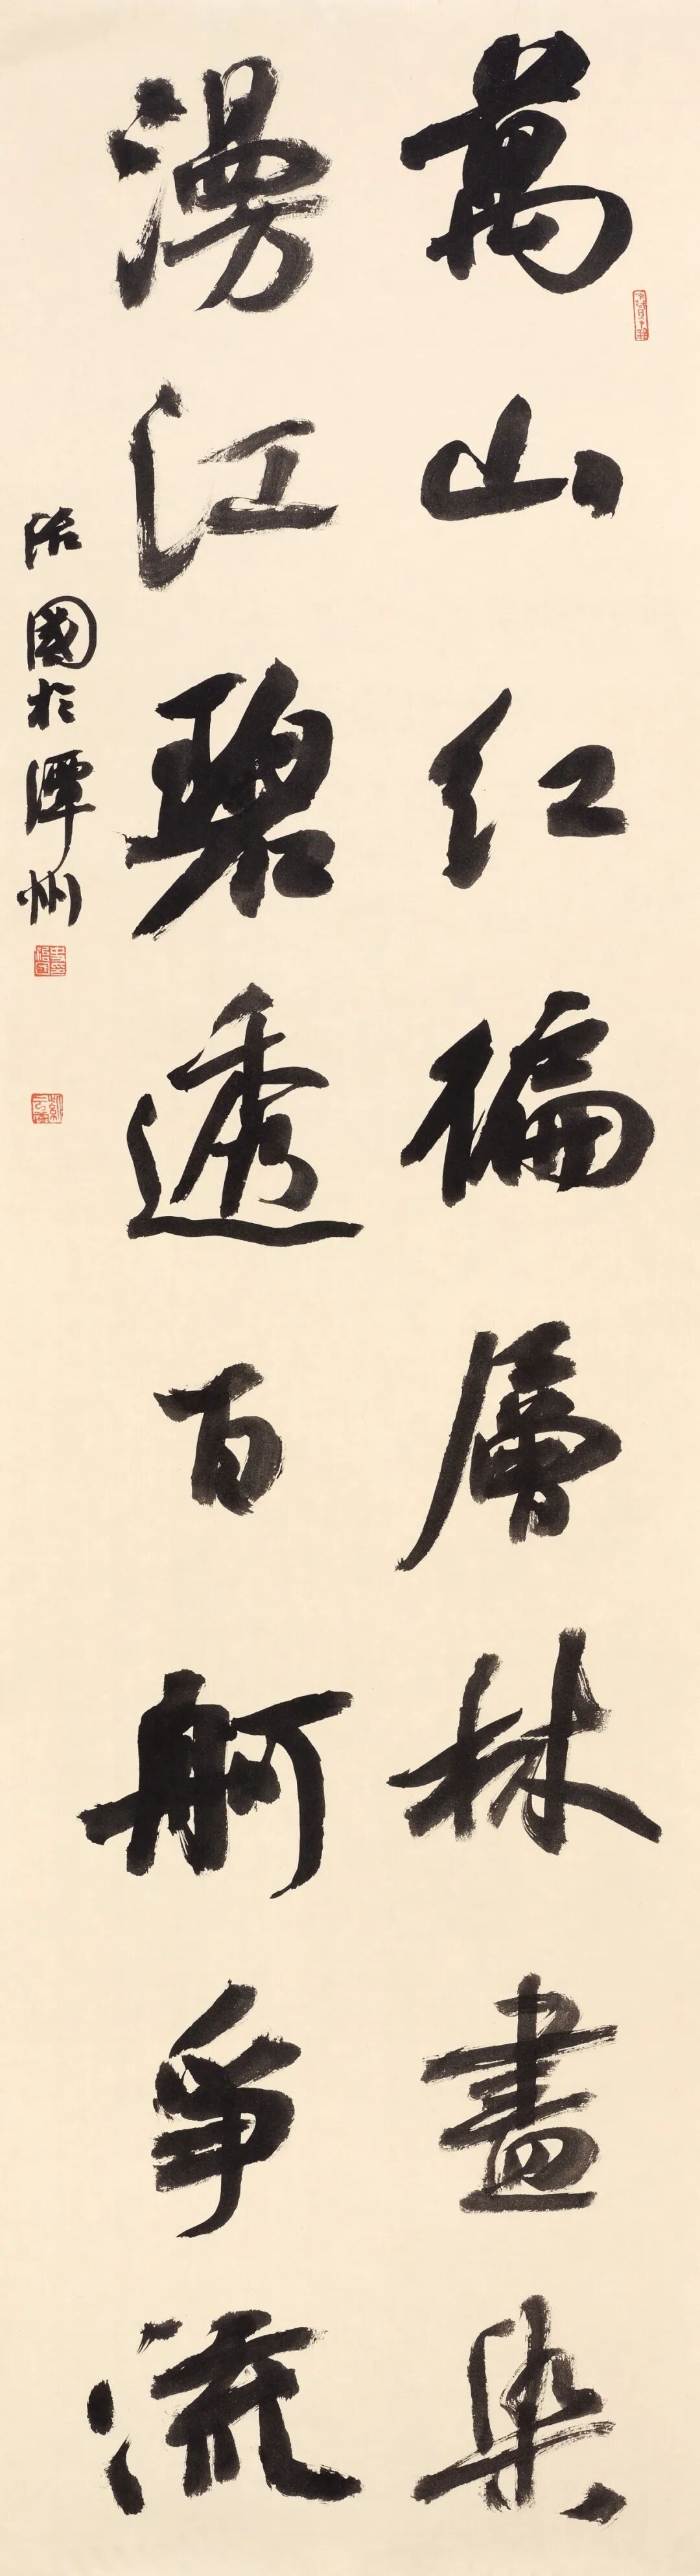 萬山紅徧層林盡染
漫江碧透百舸爭流
治國於潭州